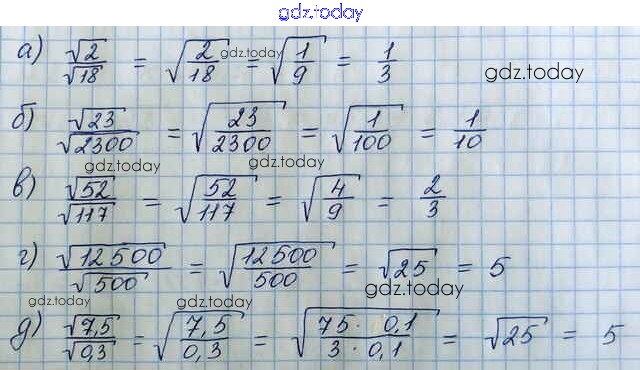 gdz.today
а) √2/√18 = √(2/18) = √(1/9) = 1/3
gdz.today
gdz.today
б) √23/√2300 = √(23/2300) = √(1/100) = 1/10
gdz.today
gdz.today
в) √52/√117 = √(52/117) = √(4/9) = 2/3
г) √12500/√500 = √(12500/500) = √25 = 5
gdz.today
gdz.today
gdz.today
д) √7,5/√0,3 = √(7,5/0,3) = √(75· 0,1/3·0,1) = √25 = 5